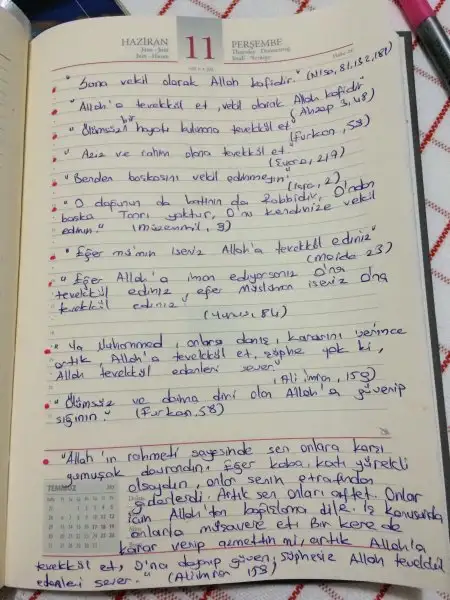 HAZİRAN
11
PERŞEMBE
• "Sana vekil olarak Allah kafidir." (Nisa, 81, 132, 181)
• "Allah'a tevekkül et, vekil olarak Allah kafidir"
(Ahzap 3, 48)
• "Ölümsüz bir hayatı bulunana tevekkül et"
(Furkan, 58)
• "Aziz ve rahim olana tevekkül et."
(Şuara, 217)
• "Benden başkasını vekil edinmeyin."
(İsra, 2)
• "O doğunun da batının da Rabbidir, O'ndan
başka Tanrı yoktur, O'nu kendinize vekil
edinin." (Müzemmil, 9)
• "Eğer mü'min iseniz Allah'a tevekkül ediniz"
(Maide 23)
• "Eğer Allah'a iman ediyorsanız O'na
tevekkül ediniz, eğer müslüman iseniz O'na
tevekkül ediniz"
(Yunus, 84)
• "Ya Muhammed, onlara danış, kararını verince
artık, Allah'a tevekkül et, şüphe yok ki,
Allah tevekkül edenleri sever."
(Ali imran, 159)
• "Ölümsüz ve daima diri olan Allah'a güvenip
sığının." (Furkan, 58)
• "Allah'ın rahmeti sayesinde sen onlara karşı
yumuşak davrandın, Eğer kaba, katı yürekli
olsaydın, onlar senin etrafından
giderlerdi. Artık sen onları affet. Onlar
TEMMUZ
için Allah'tan bağışlama dile. İş konusunda
onlarla müşavere et. Bir kere de
karar verip azmettin mi, artık Allah'a
tevekkül et, O'na dayanıp güven, şüphesiz Allah tevekkül
edenleri sever." (Aliimran 159)